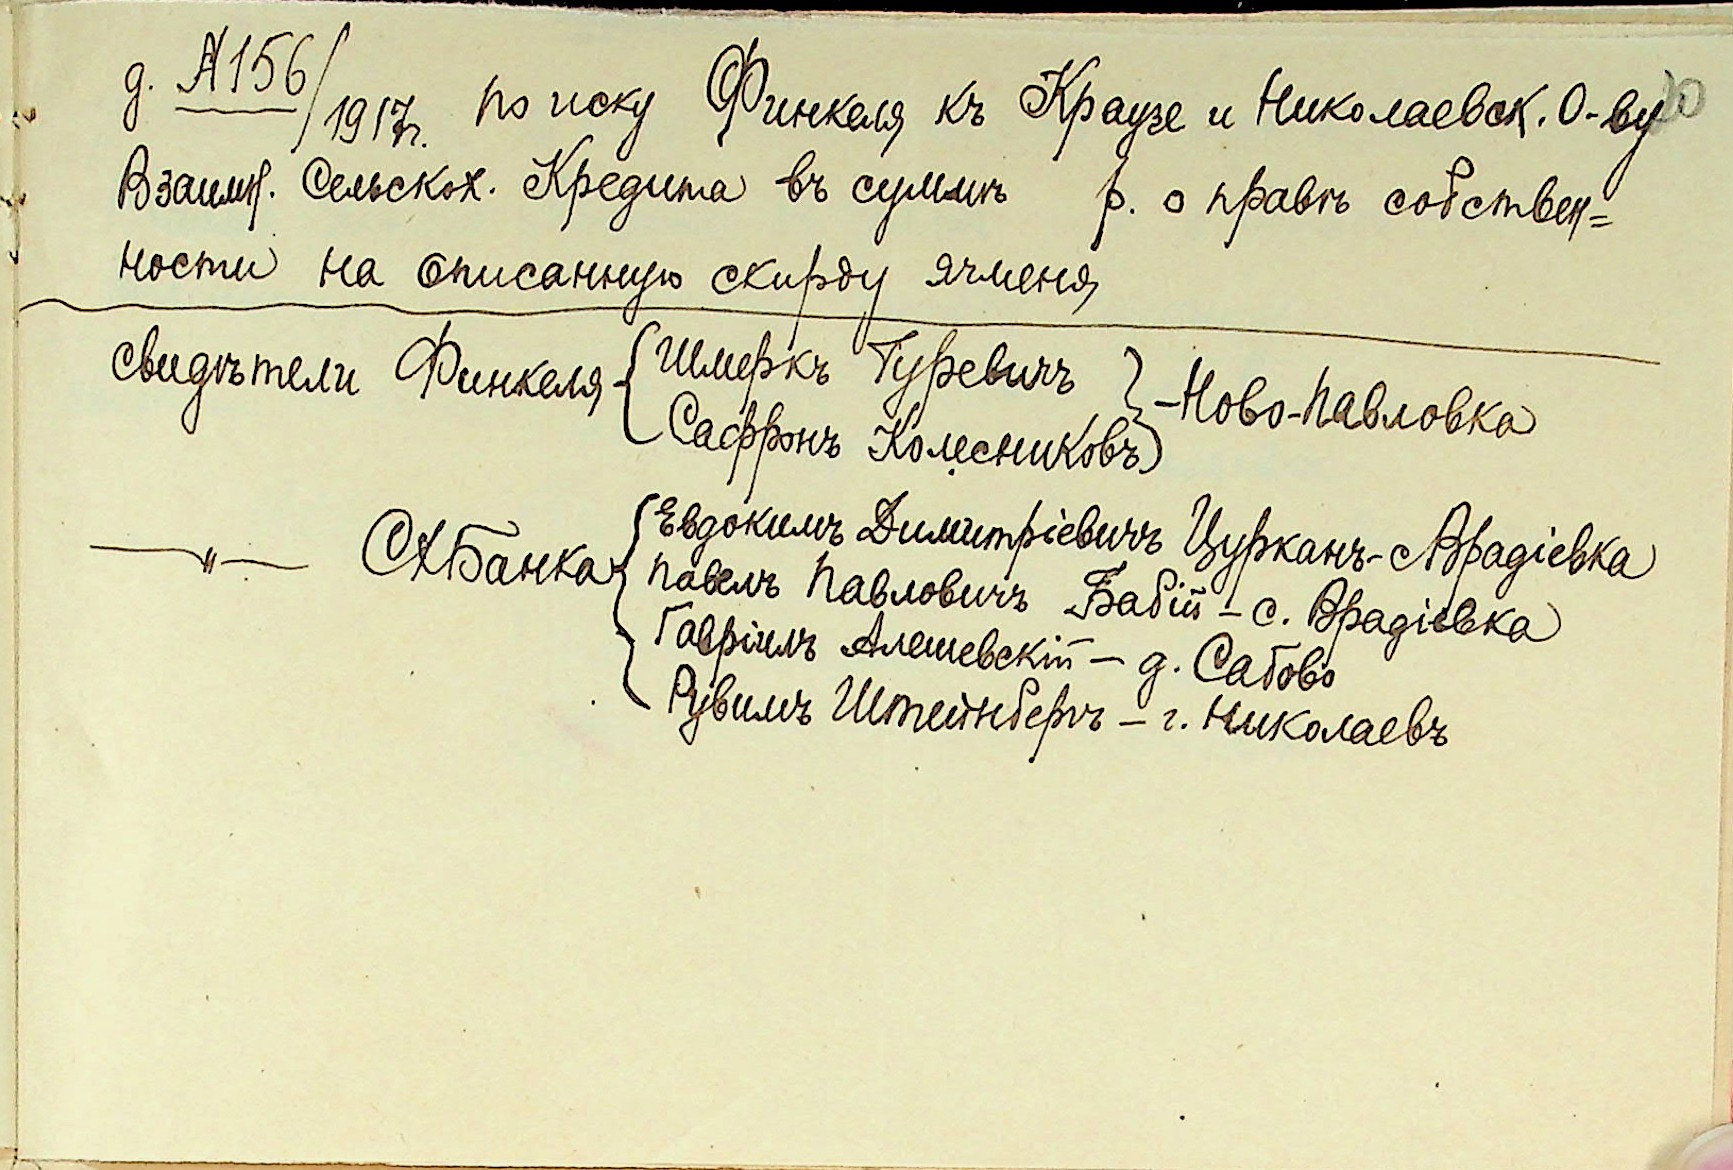 д. А156/1917г. по иску Финкеля къ Краузе и Николаевск. О-ву
Взаимн. Сельскох. Кредита въ суммѣ р. о правѣ собствен=
ности на описанную скирду ячменя
свидѣтели Финкеля { Шмеркъ Гуревичъ } - Ново-Павловка
Сафронъ Колесниковъ
—"— СХБанка { Евдокимъ Димитріевичъ Цурканъ - с Врадіевка
Павелъ Павловичъ Бабій - с. Врадіевка
Гавріилъ Алешевскій - д. Сабово
Рувимъ Штейнбергъ - г. Николаевъ